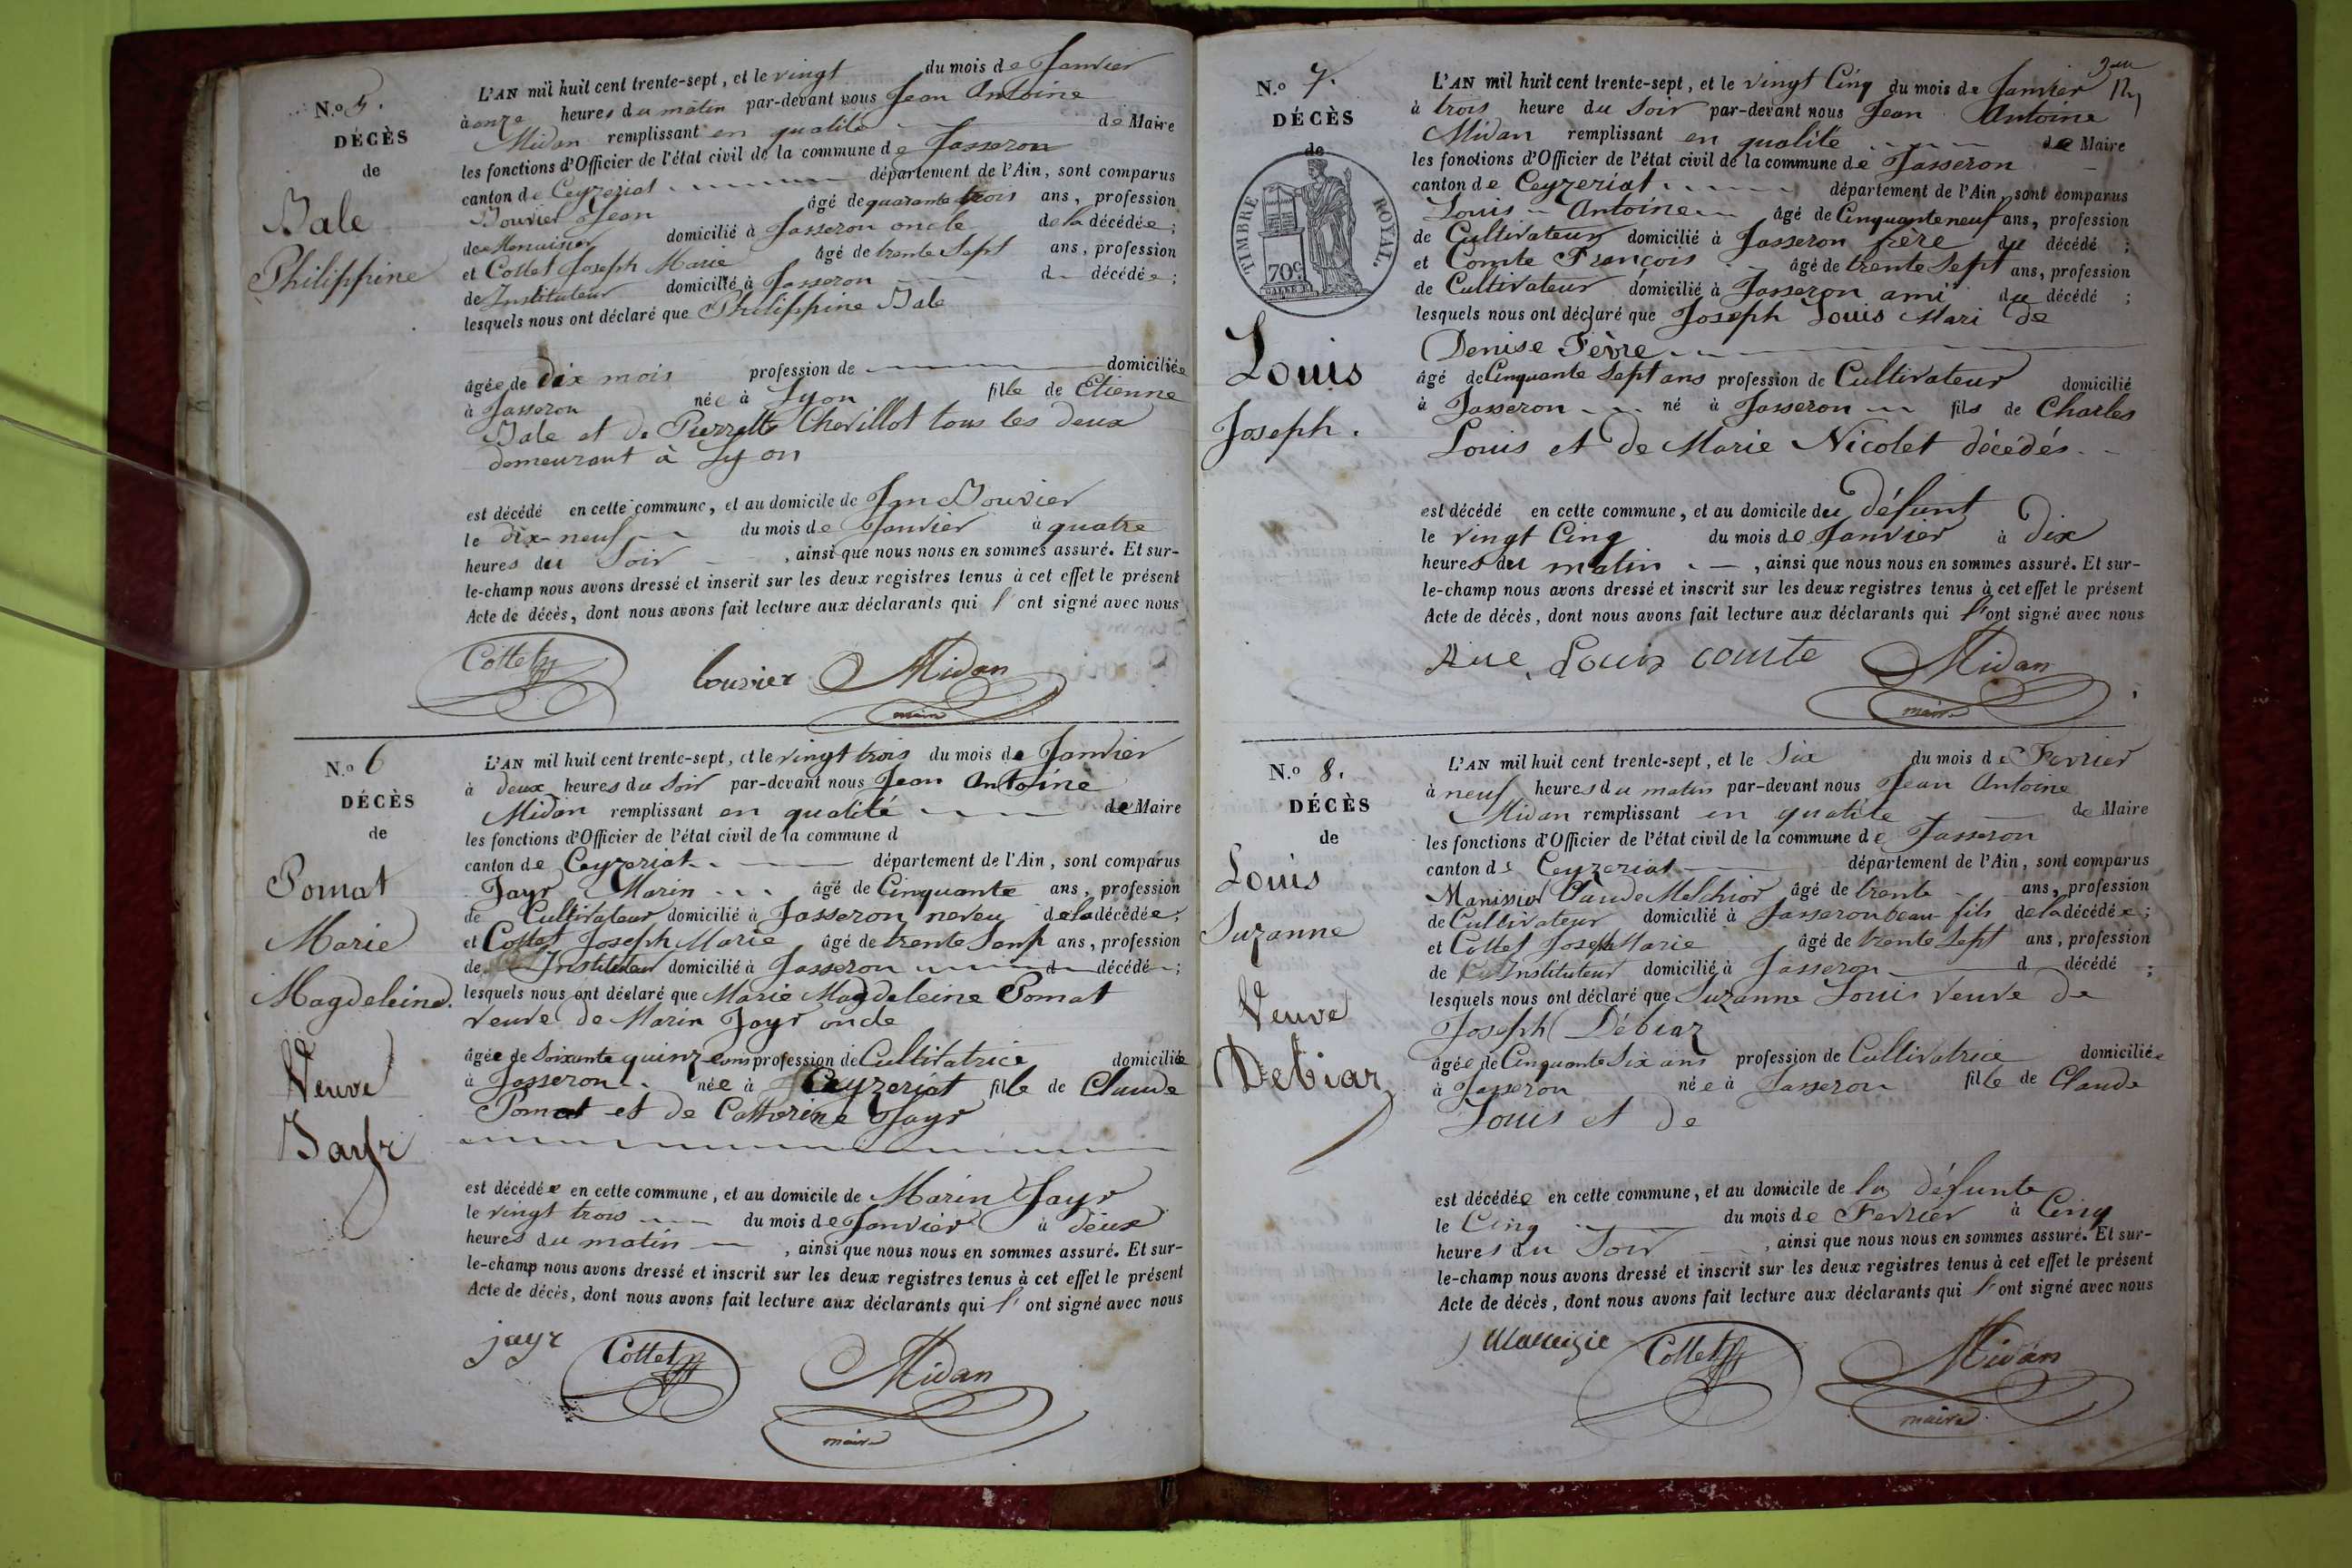 N.º 5.
DÉCÈS
de
Bale
Philippine
L'AN mil huit cent trente-sept, et le vingt du mois de Janvier
à onze heures du matin par-devant nous Jean Antoine
Midan remplissant en qualité de Maire
les fonctions d'Officier de l'état civil de la commune de Jasseron
canton de Ceyzeriat département de l'Ain, sont comparus
Bouvier Jean âgé de quarante trois ans, profession
de Menuisier domicilié à Jasseron oncle de la décédée;
et Cottet Joseph Marie âgé de trente Sept ans, profession
de Instituteur domicilié à Jasseron d décédée;
lesquels nous ont déclaré que Philippine Bale
âgée de dix mois profession de domiciliée
à Jasseron née à Lyon fille de Etienne
Bale et de Pierrette Chevillot tous les deux
demeurant à Lyon
est décédé en cette commune, et au domicile de Jean Bouvier
le dix-neuf du mois de Janvier à quatre
heures du Soir, ainsi que nous nous en sommes assuré. Et sur-
le-champ nous avons dressé et inscrit sur les deux registres tenus à cet effet le présent
Acte de décès, dont nous avons fait lecture aux déclarants qui l'ont signé avec nous
Cottet bouvier Midan
maire
N.º 6
DÉCÈS
de
Pomat
Marie
Magdeleine.
Veuve
Jayr
L'AN mil huit cent trente-sept, et le vingt trois du mois de Janvier
à deux heures du Soir par-devant nous Jean Antoine
Midan remplissant en qualité de Maire
les fonctions d'Officier de l'état civil de la commune d
canton de Ceyzeriat département de l'Ain, sont comparus
Jayr Marin âgé de Cinquante ans, profession
de Cultivateur domicilié à Jasseron neveu de la décédée;
et Cottet Joseph Marie âgé de trente Sept ans, profession
de Instituteur domicilié à Jasseron d décédé;
lesquels nous ont déclaré que Marie Magdeleine Pomat
veuve de Marin Jayr oncle
âgée de Soixante quinze ans profession de Cultivatrice domiciliée
à Jasseron née à Ceyzeriat fille de Claude
Pomat et de Catherine Jayr
est décédée en cette commune, et au domicile de Marin Jayr
le vingt trois du mois de Janvier à deux
heures du matin, ainsi que nous nous en sommes assuré. Et sur-
le-champ nous avons dressé et inscrit sur les deux registres tenus à cet effet le présent
Acte de décès, dont nous avons fait lecture aux déclarants qui l'ont signé avec nous
jayr Cottet Midan
maire
N.º 7.
DÉCÈS
de
TIMBRE ROYAL.
70c
Louis
Joseph.
L'AN mil huit cent trente-sept, et le vingt Cinq du mois de Janvier
à trois heure du Soir par-devant nous Jean Antoine
Midan remplissant en qualité de Maire
les fonctions d'Officier de l'état civil de la commune de Jasseron
canton de Ceyzeriat département de l'Ain, sont comparus
Louis Antoine âgé de Cinquante neuf ans, profession
de Cultivateur domicilié à Jasseron frère du décédé;
et Comte François âgé de trente Sept ans, profession
de Cultivateur domicilié à Jasseron ami du décédé;
lesquels nous ont déclaré que Joseph Louis Mari de
Denise Fèvre
âgé de Cinquante Sept ans profession de Cultivateur domicilié
à Jasseron né à Jasseron fils de Charles
Louis et de Marie Nicolet décédés.
est décédé en cette commune, et au domicile du défunt
le vingt Cinq du mois de Janvier à dix
heures du matin, ainsi que nous nous en sommes assuré. Et sur-
le-champ nous avons dressé et inscrit sur les deux registres tenus à cet effet le présent
Acte de décès, dont nous avons fait lecture aux déclarants qui l'ont signé avec nous
Louis comte Midan
maire
N.º 8.
DÉCÈS
de
Louis
Suzanne
Veuve
Debiar
L'AN mil huit cent trente-sept, et le Six du mois de Fevrier
à neuf heures du matin par-devant nous Jean Antoine
Midan remplissant en qualité de Maire
les fonctions d'Officier de l'état civil de la commune de Jasseron
canton de Ceyzeriat département de l'Ain, sont comparus
Manissier Claude Melchior âgé de trente ans, profession
de Cultivateur domicilié à Jasseron beau-fils de la décédée;
et Cottet Joseph Marie âgé de trente Sept ans, profession
de Instituteur domicilié à Jasseron d décédé;
lesquels nous ont déclaré que Suzanne Louis veuve de
Joseph Débiar
âgée de Cinquante Six ans profession de Cultivatrice domiciliée
à Jasseron née à Jasseron fille de Claude
Louis et de
est décédée en cette commune, et au domicile de la défunte
le Cinq du mois de Fevrier à Cinq
heures du Soir, ainsi que nous nous en sommes assuré. Et sur-
le-champ nous avons dressé et inscrit sur les deux registres tenus à cet effet le présent
Acte de décès, dont nous avons fait lecture aux déclarants qui l'ont signé avec nous
Cottet Midan
maire